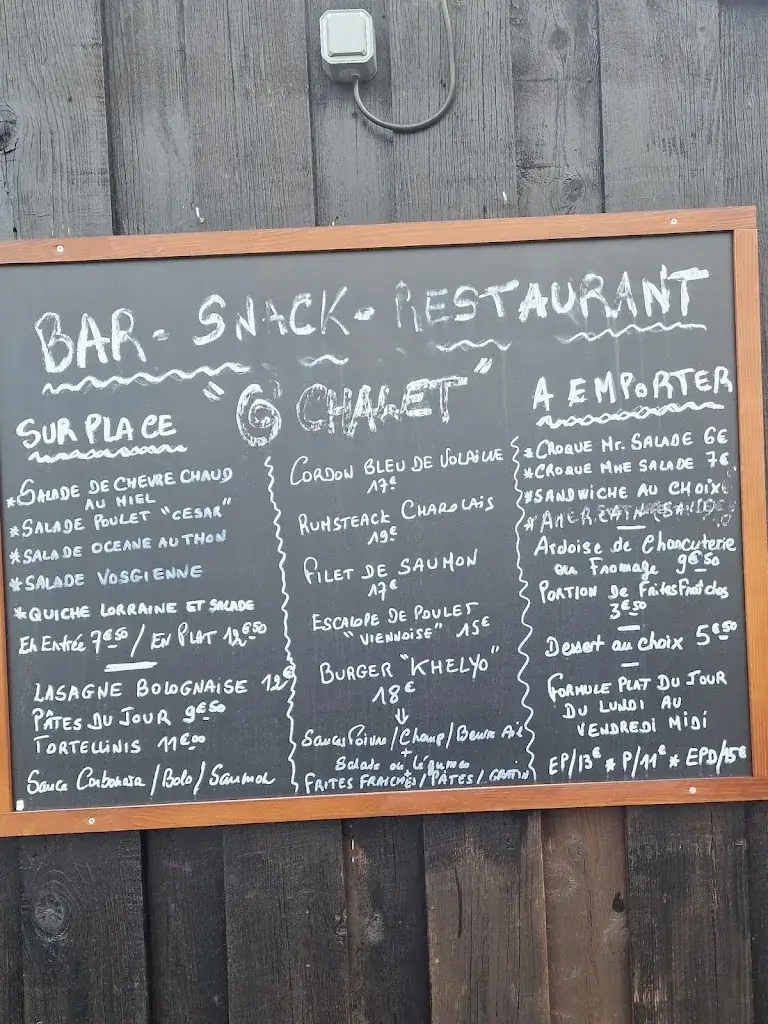 BAR - SNACK - RESTAURANT
"Ô CHALET"
SUR PLACE
*SALADE DE CHEVRE CHAUD
AU MIEL
*SALADE POULET "CESAR"
*SALADE OCEANE AU THON
*SALADE VOSGIENNE
*QUICHE LORRAINE ET SALADE
En Entrée 7€50 / EN PLAT 12€50
LASAGNE BOLOGNAISE 12€
PÂTES DU JOUR 9€50
TORTELLINIS 11€00
Sauce Carbonara / Bolo / Saumon
CORDON BLEU DE VOLAILLE
17€
RUMSTEACK CHAROLAIS
19€
FILET DE SAUMON
17€
ESCALOPE DE POULET
"VIENNOISE" 15€
BURGER "KHELYO"
18€
⇓
Sauces Poivre / Champ / Beurre Ail
+
Salade ou légumes
+
FRITES FRAICHES / PÂTES / GRATIN
A EMPORTER
*CROQUE Mr. SALADE 6€
*CROQUE Mme SALADE 7€
*SANDWICHE AU CHOIX
*AMERICAIN
Ardoise de Charcuterie
ou Fromage 9€50
PORTION DE Frites Fraîches
3€50
Dessert au choix 5€50
FORMULE PLAT DU JOUR
DU LUNDI AU
VENDREDI MIDI
EP/13€ * P/11€ * EPD/15€